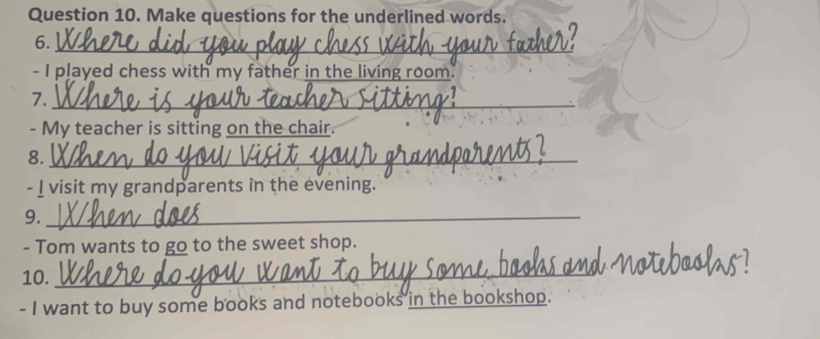 Question 10. Make questions for the underlined words.
6. Where did you play chess with your father?
- I played chess with my father in the living room.
7. Where is your teacher sitting?
- My teacher is sitting on the chair.
8. When do you visit your grandparents?
- I visit my grandparents in the evening.
9. When does
- Tom wants to go to the sweet shop.
10. Where do you want to buy some books and notebooks?
- I want to buy some books and notebooks in the bookshop.